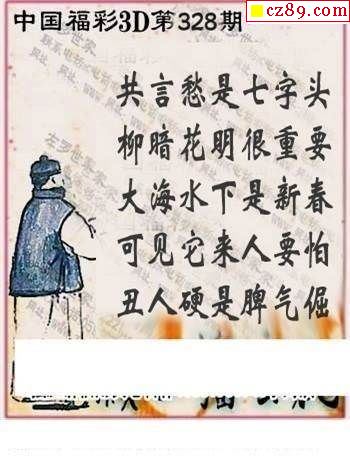 cz89.com
中国福彩3D第328期
共言愁是七字头
柳暗花明很重要
大海水下是新春
可见它来人要怕
丑人硬是脾气倔